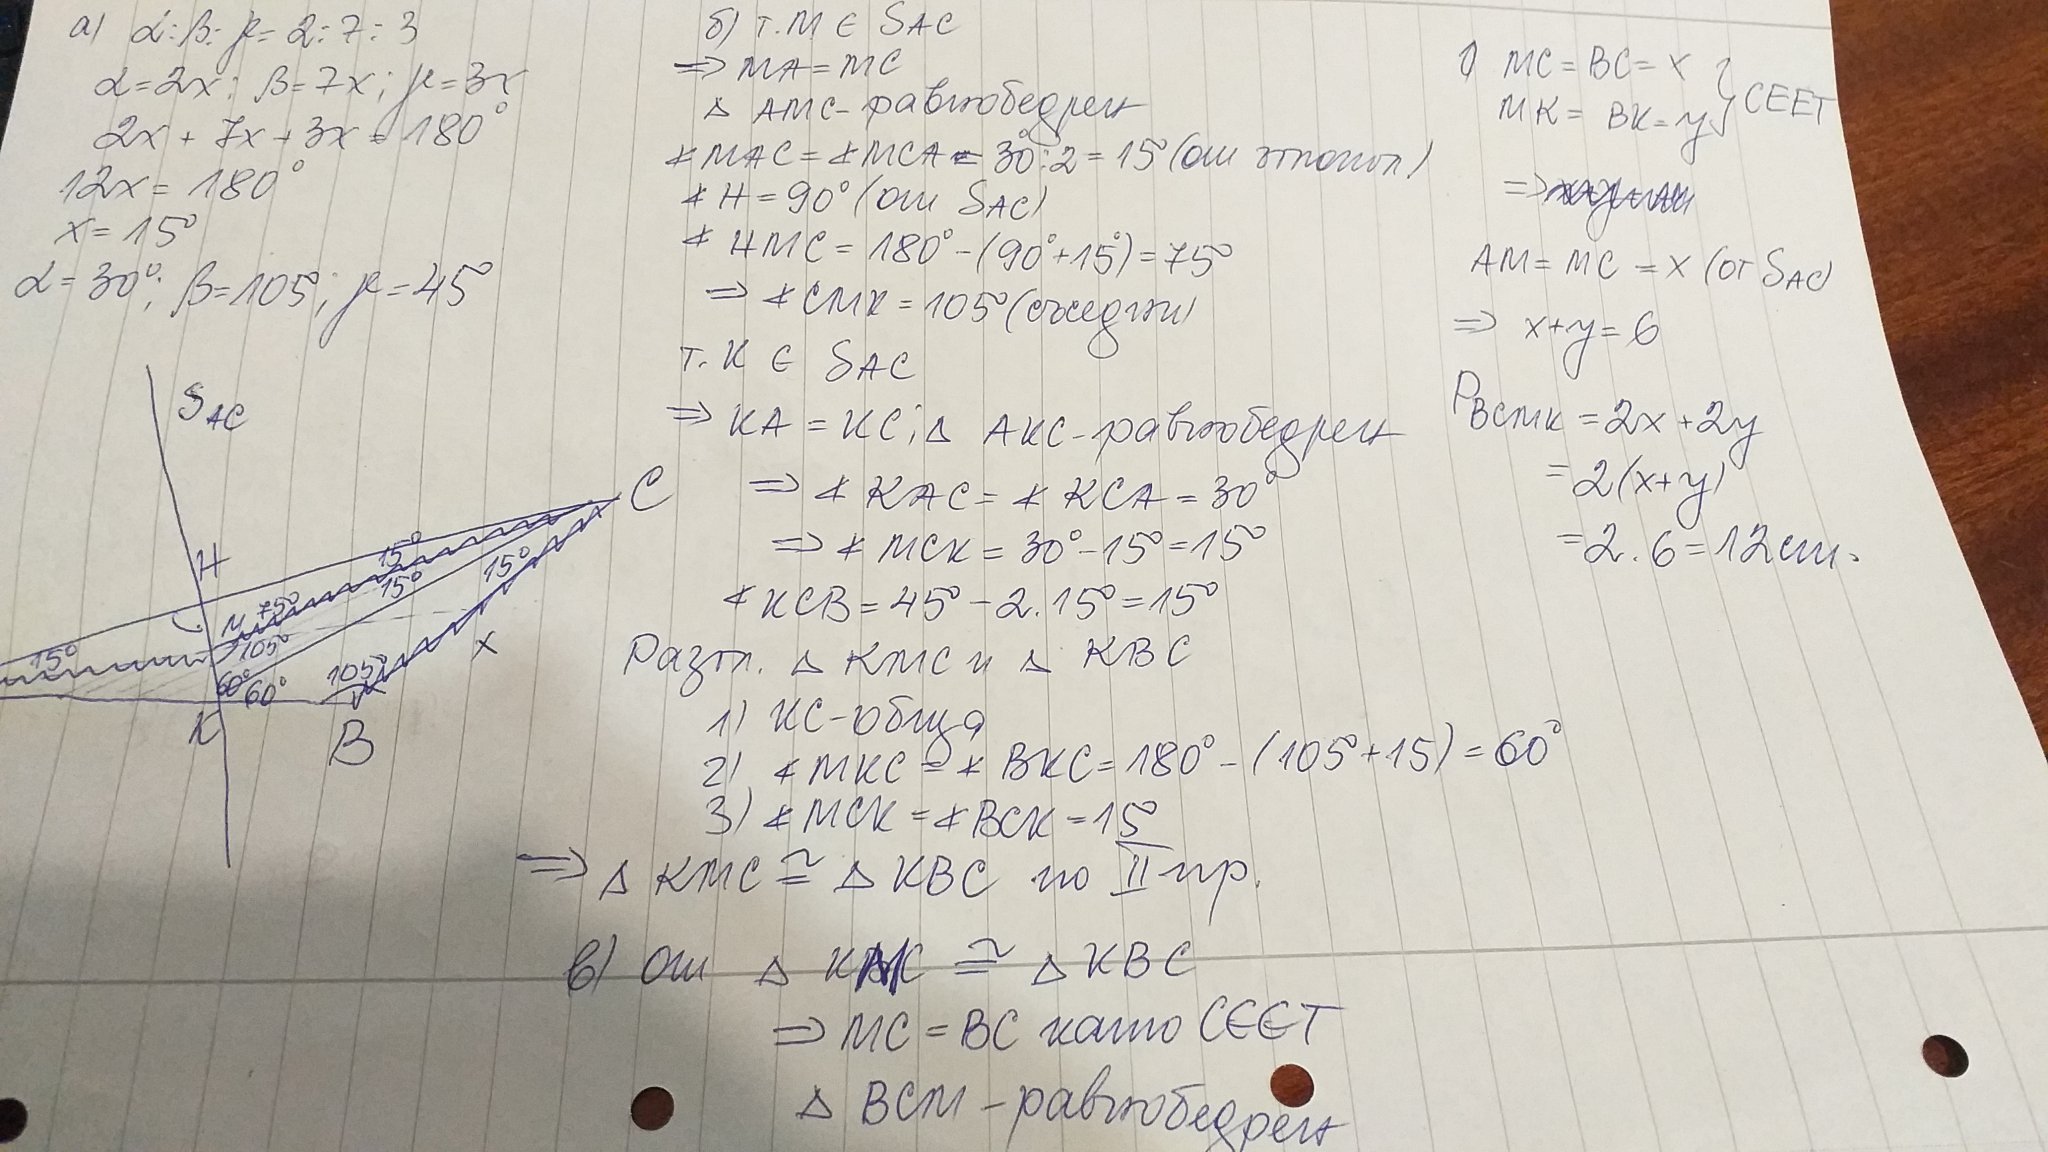 а) α:β:γ = 2:7:3
α=2x; β=7x; γ=3x
2x + 7x + 3x = 180°
12x = 180°
x = 15°
α = 30°; β=105°; γ=45°
S AC
C
H
15°
15°
15°
M 75°
105°
15°
60°
60°
105°
x
K
B
б) т. M ∈ S AC
⇒ MA = MC
△ AMC - равнобедрен
∢ MAC = ∢ MCA = 30°:2 = 15° (от ъглопол.)
∢ H = 90° (от S AC)
∢ HMC = 180° - (90°+15°) = 75°
⇒ ∢ CMK = 105° (съседни)
т. K ∈ S AC
⇒ KA = KC; △ AKC - равнобедрен
⇒ ∢ KAC = ∢ KCA = 30°
⇒ ∢ MCK = 30° - 15° = 15°
∢ KCB = 45° - 2.15° = 15°
Разгл. △ KMC и △ KBC
1) KC - обща
2) ∢ MKC = ∢ BKC = 180° - (105° + 15) = 60°
3) ∢ MCK = ∢ BCK = 15°
⇒ △ KMC ≅ △ KBC по II пр.
в) от △ KMC ≅ △ KBC
⇒ MC = BC като СЕЕТ
△ BCM - равнобедрен
MC = BC = x } СЕЕТ
MK = BK = y
⇒
AM = MC = x (от S AC)
⇒ x+y = 6
P BCMK = 2x + 2y
= 2(x+y)
= 2.6 = 12 cm.